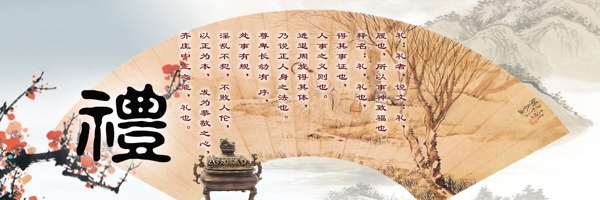 礼：礼者，说文：礼，
履也，所以事神致福也。
释名：礼，礼也，
得其事证也，
人事之义则也。
进退周旋得其体，
乃说正人身之法也。
尊卑长幼有序，
处事有规，
淫乱不犯，不败人伦，
以正为本，发为恭敬之心，
齐庄中正之能，礼也。
禮